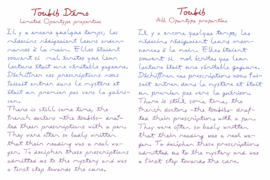 Toubib Démo
Limited Opentype properties
Il y a encore quelque temps, les
médecins rédigeaient leurs ordon-
nances à la main. Elles étaient
souvent si mal écrites que leur
lecture était une véritable gageure.
Déchiffrer ces prescriptions nous
faisait entrer dans le mystère et était
un premier pas vers la guéri-
son.
There is still some time, the
french doctors -the toubibs- draf-
ted their prescriptions with a pen.
They were often so badly written
that their reading was a real wa-
ger. To decipher these prescriptions
admitted us to the mystery and was
a first step towards the cure.
Toubib
All Opentype properties
Il y a encore quelque temps, les
médecins rédigeaient leurs ordon-
nances à la main. Elles étaient
souvent si mal écrites que leur
lecture était une véritable gageure.
Déchiffrer ces prescriptions nous fai-
sait entrer dans le mystère et était
un premier pas vers la guérison.
There is still some time, the
french doctors -the toubibs- draf-
ted their prescriptions with a pen.
They were often so badly written
that their reading was a real wa-
ger. To decipher these prescriptions
admitted us to the mystery and was
a first step towards the cure.